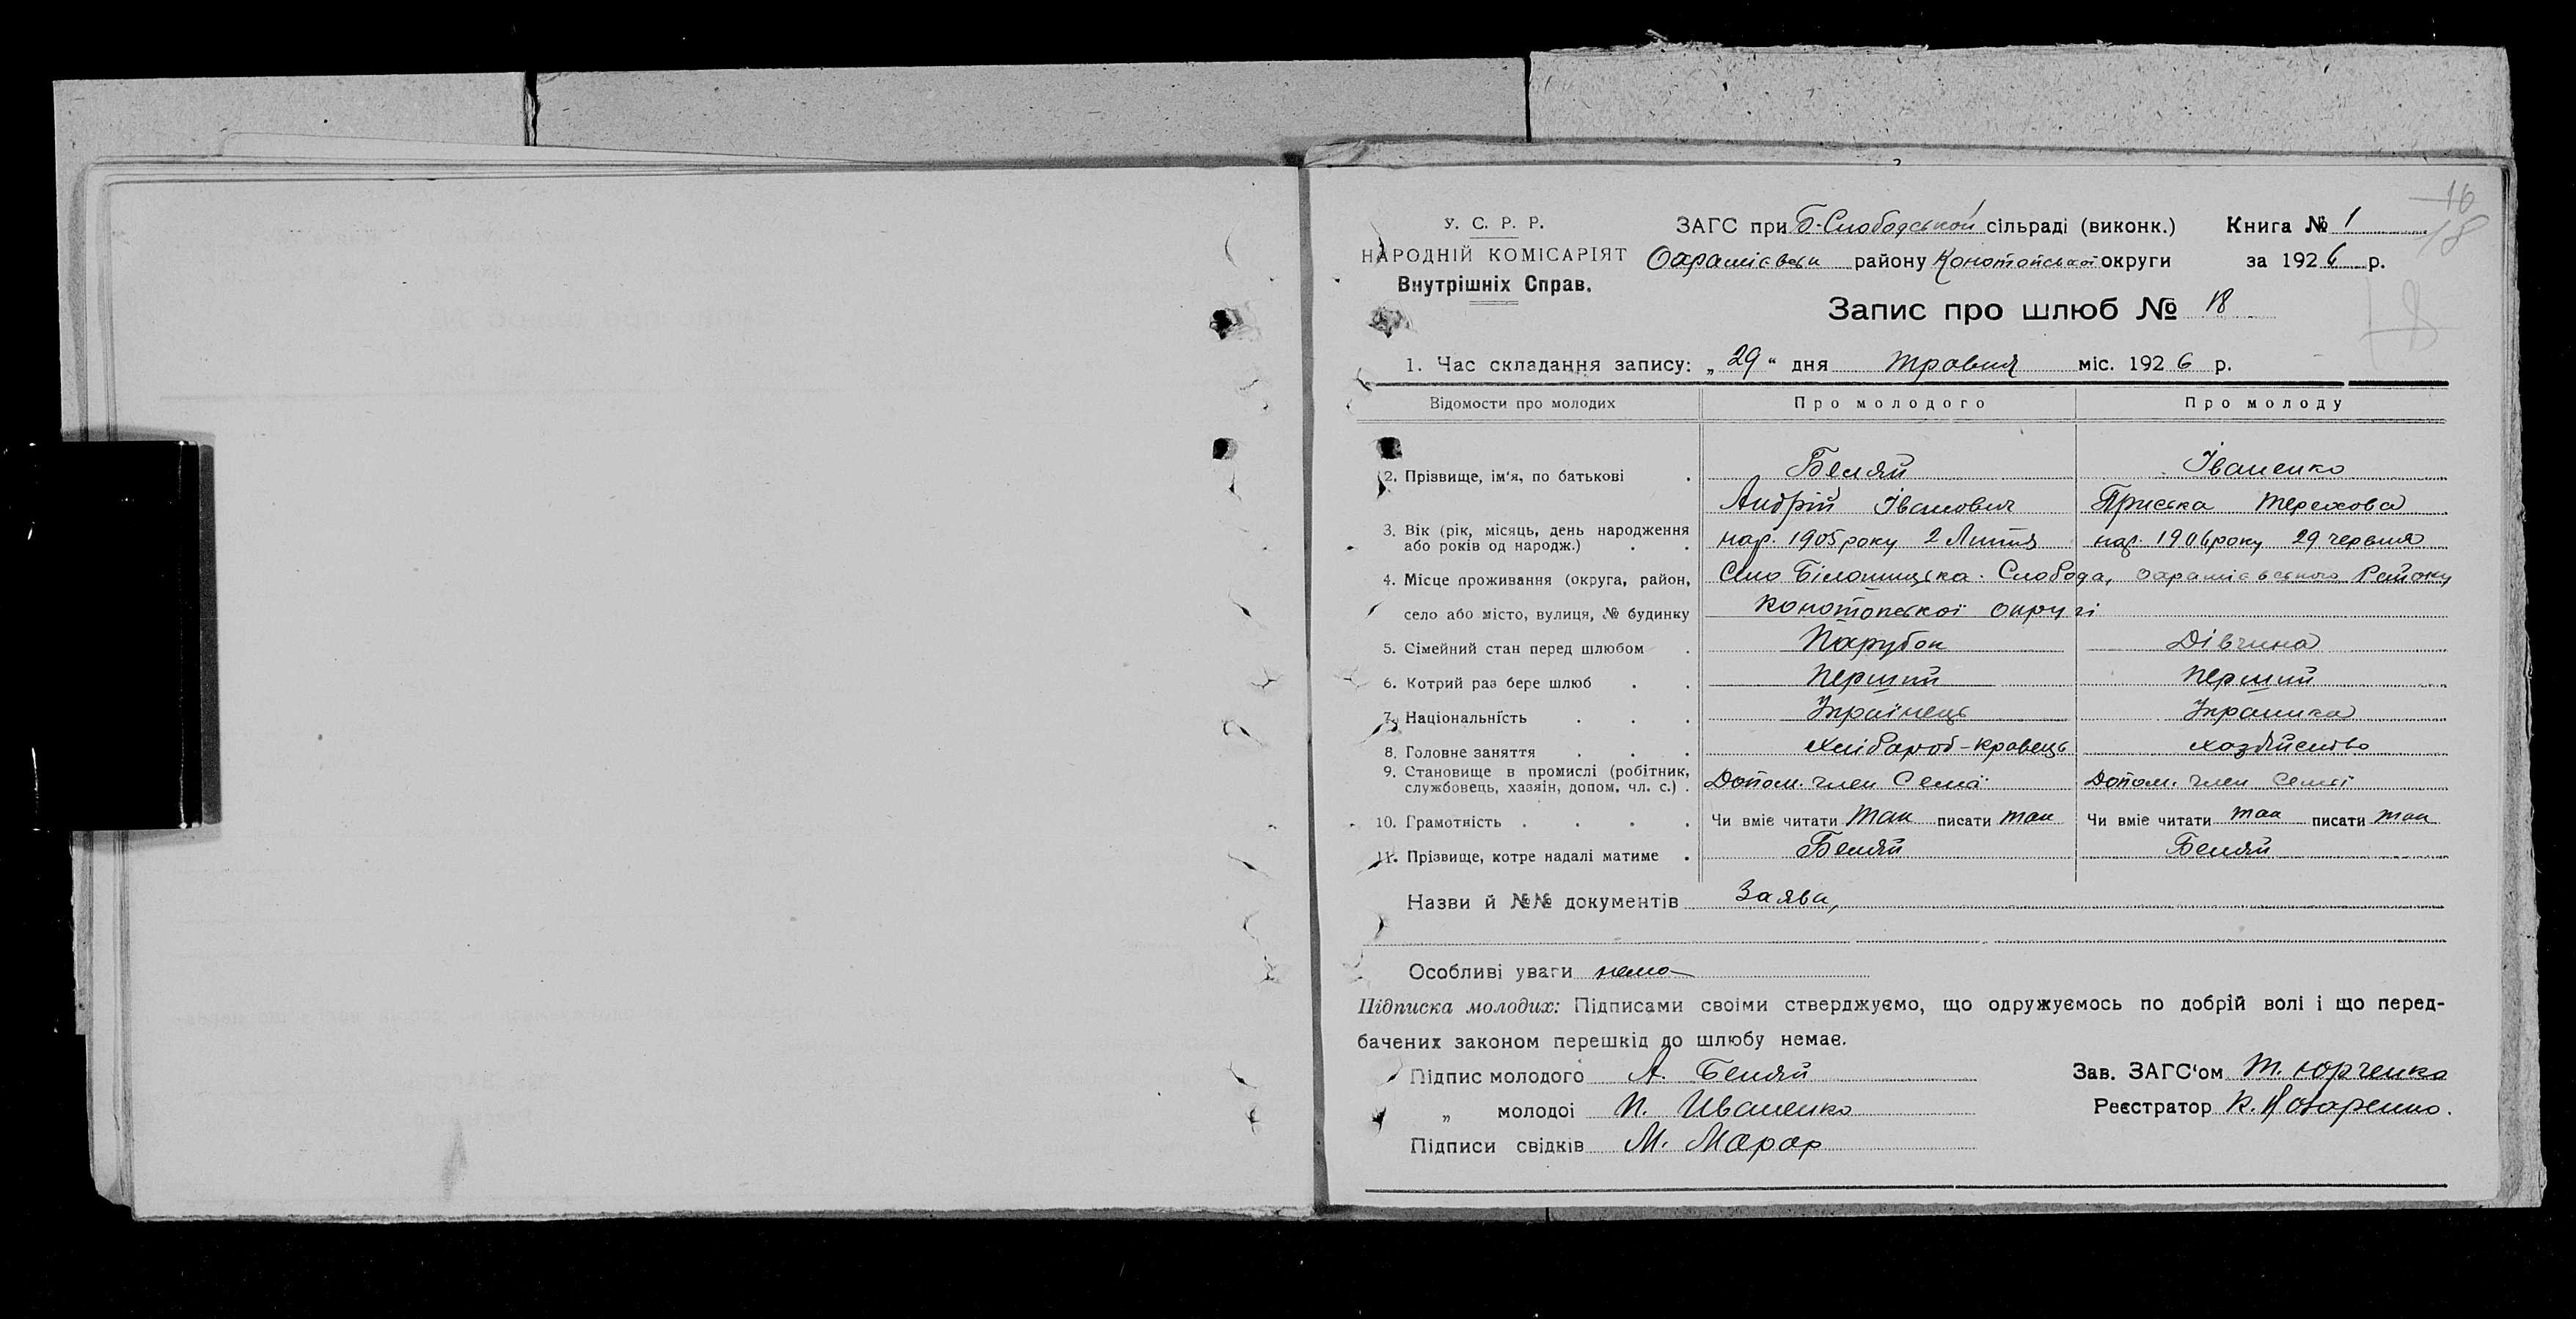 16
18
У. С. Р. Р.
НАРОДНІЙ КОМІСАРІЯТ
Внутрішніх Справ.
ЗАГС при Б-Слободській сільраді (виконк.) Книга № 1
району Конотопської округи за 1926 р.
Запис про шлюб № 18
18
1. Час складання запису: „29“ дня травня міс. 1926 р.
Відомости про молодих Про молодого Про молоду
2. Прізвище, ім'я, по батькові Беляй Іваненко
Андрій Іванович Приська Терехова
3. Вік (рік, місяць, день народження
або років од народж.) нар. 1905 року 2 нар. 1906 року 29 червня
4. Місце проживання (округа, район, Село Слобода, Району
село або місто, вулиця, № будинку Конотопської округі
5. Сімейний стан перед шлюбом Парубок Дівчина
6. Котрий раз бере шлюб Перший Перший
7. Національність Українець Українка
8. Головне заняття Хлібароб-кравець хозяйство
9. Становище в промислі (робітник,
службовець, хазяін, допом. чл. с.) Допом. член Семї Допом. член Семї
10. Грамотність Чи вміє читати так писати так Чи вміє читати так писати так
11. Прізвище, котре надалі матиме Беляй Беляй
Назви й №№ документів Заява,
Особливі уваги нема
Підписка молодих: Підписами своіми стверджуємо, що одружуємось по добрій волі і що перед-
бачених законом перешкід до шлюбу немає.
Підпис молодого А. Беляй Зав. ЗАГС'ом Т. Юрченко
„ молодоі П. Иваненко Реєстратор К.
Підписи свідків М.